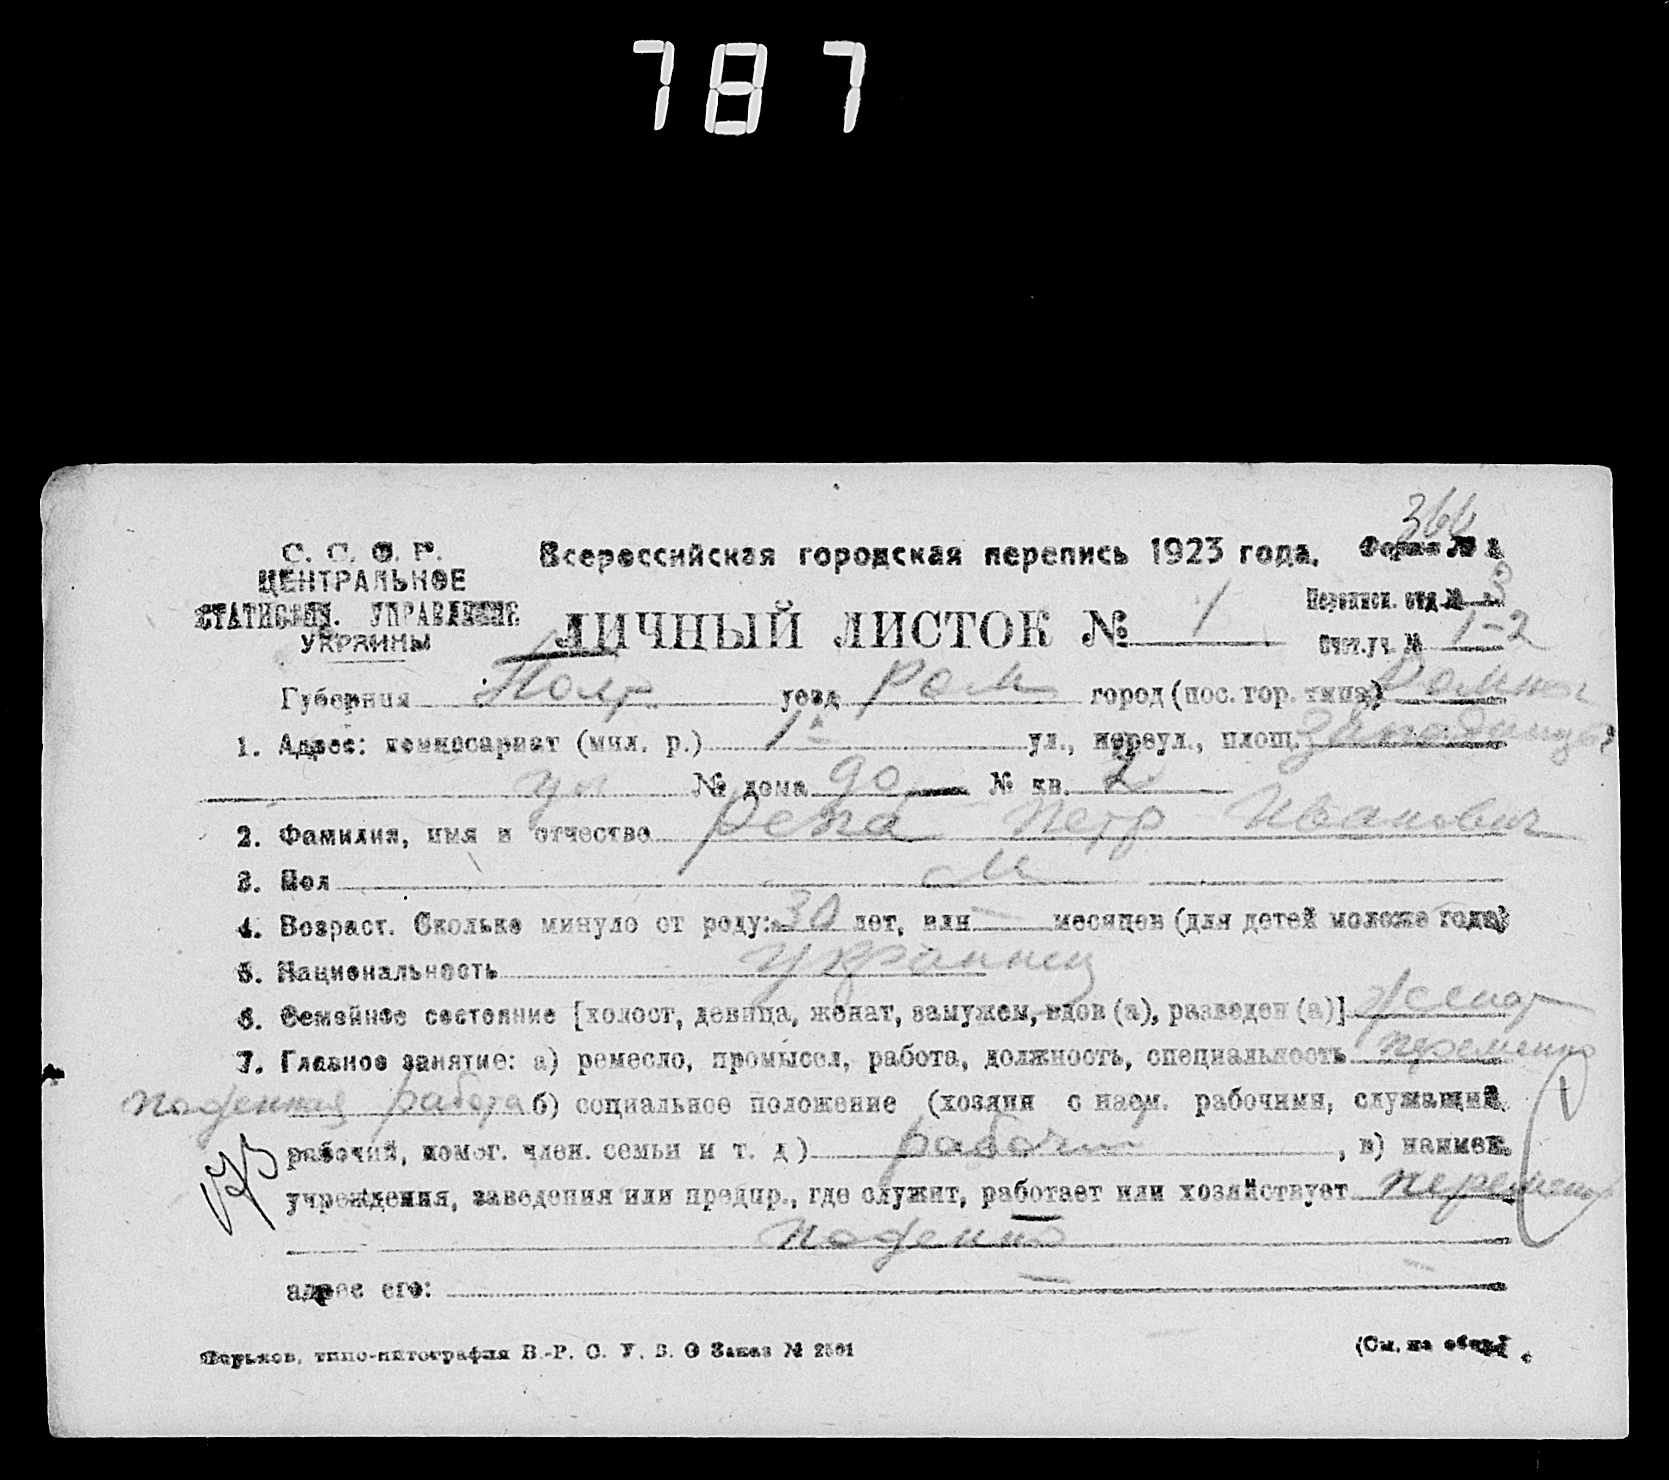 787
366
С. С. Ф. Р.
ЦЕНТРАЛЬНОЕ
СТАТИСТИЧ. УПРАВЛЕНИЕ
УКРАИНЫ
Всероссийская городская перепись 1923 года.
Форма № 1
ЛИЧНЫЙ ЛИСТОК № 1
Переписн. отд. № 3
Счет. уч. № 1-2
Губерния Полт. уезд Ром город (пос. гор. типа) Ромны
1. Адрес: комиссариат (мил. р.) 1й ул., переул., площ.
№ дома 90 № кв. 2
2. Фамилия, имя и отчество Репа Петр Иванович
3. Пол М
4. Возраст. Сколько минуло от роду: 30 лет, или — месяцев (для детей моложе года)
5. Национальность украинец
6. Семейное состояние [холост, девица, женат, замужем, вдов (а), разведен (а)] женат
7. Главное занятие: а) ремесло, промысел, работа, должность, специальность переменно
поденная работа б) социальное положение (хозяин с наем. рабочими, служащий
рабочий, помог. член. семьи и т. д.) рабочий, в) наимен.
учреждения, заведения или предпр., где служит, работает или хозяйствует переменно
поденно
адрес его: —
Харьков, типо-литография В.-Р. С. У. В. О Заказ № 2501
(См. на обор.)